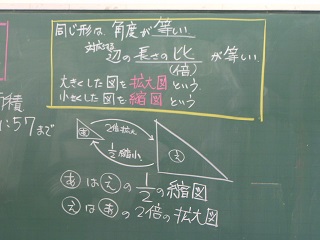 同じ形は、角度が等しい
対応する辺の長さの比(倍)が等しい
大きくした図を拡大図という
小さくした図を縮図という
積
:57まで
あ
2倍拡大
1/2縮小
え
あはえの1/2の縮図
えはあの2倍の拡大図